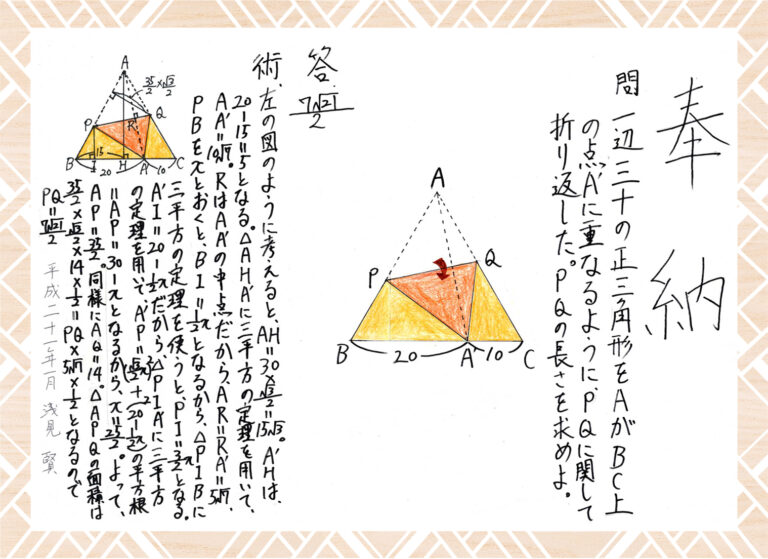 奉納
問 一辺三十の正三角形をAがBC上
の点A'に重なるように、PQに関して
折り返した。PQの長さを求めよ。
A
P
Q
B 20 A' 10 C
答 7√21/2
術、左の図のように考えると、AH=30×√3/2=15√3。A'Hは、
20-15=5となる。△AHA'に三平方の定理を用いて、
AA'=10√7。RはAA'の中点だから、AR=RA'=5√7、
PBをxとおくと、BI=1/2xとなるから、△PIBに
三平方の定理を使うと、PI=√3/2xとなる。
A'I=20-1/2xだから、△PIA'に三平方
の定理を用いて、A'P=(√3/2x)²+(20-1/2x)²の平方根
=AP=30-xとなるから、x=25/2。よって、
AP=35/2。同様にAQ=14。△APQの面積は
35/2×√3/2×14×1/2=PQ×5√7×1/2となるので
PQ=7√21/2
平成二十一年一月 浅見 賢
A
35/2×√3/2
P R Q
15
B I H A' C
20